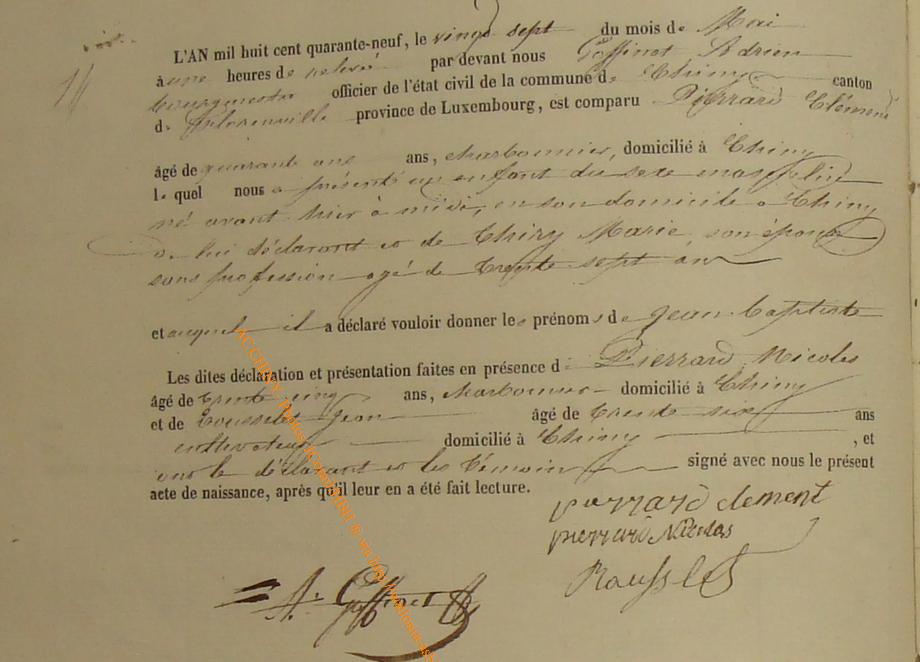 L'AN mil huit cent quarante-neuf, le vingt sept du mois de Mai
à une heures de relevé par devant nous Goffinet Adrien
bourgmestre officier de l'état civil de la commune de Chiny canton
de Florenville province de Luxembourg, est comparu Pierrard Clément
âgé de quarante ans ans, charbonnier, domicilié à Chiny
le quel nous a présenté un enfant du sexe masculin
né avant hier à midi, en son domicile à Chiny
de lui déclarant et de Thiry Marie, son épouse
sans profession agé de trente sept ans
et auquel il a déclaré vouloir donner les prénoms de Jean Baptiste
Les dites déclaration et présentation faites en présence de Pierrard Nicolas
âgé de trente cinq ans, charbonnier domicilié à Chiny
et de Rousselet Jean âgé de trente six ans
cultivateur domicilié à Chiny , et
ont le déclarant et les témoins signé avec nous le présent
acte de naissance, après qu'il leur en a été fait lecture.
pierrard clement
pierrard Nicolas
Rousslet
A. Goffinet